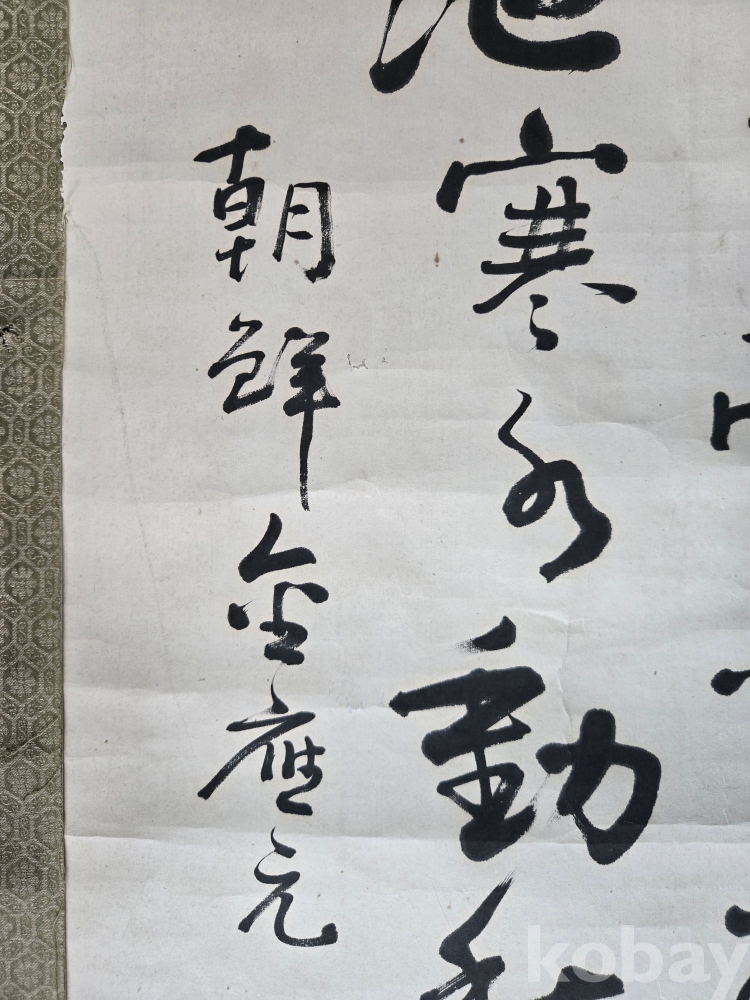 池寒水動
朝鮮金應元
kobay